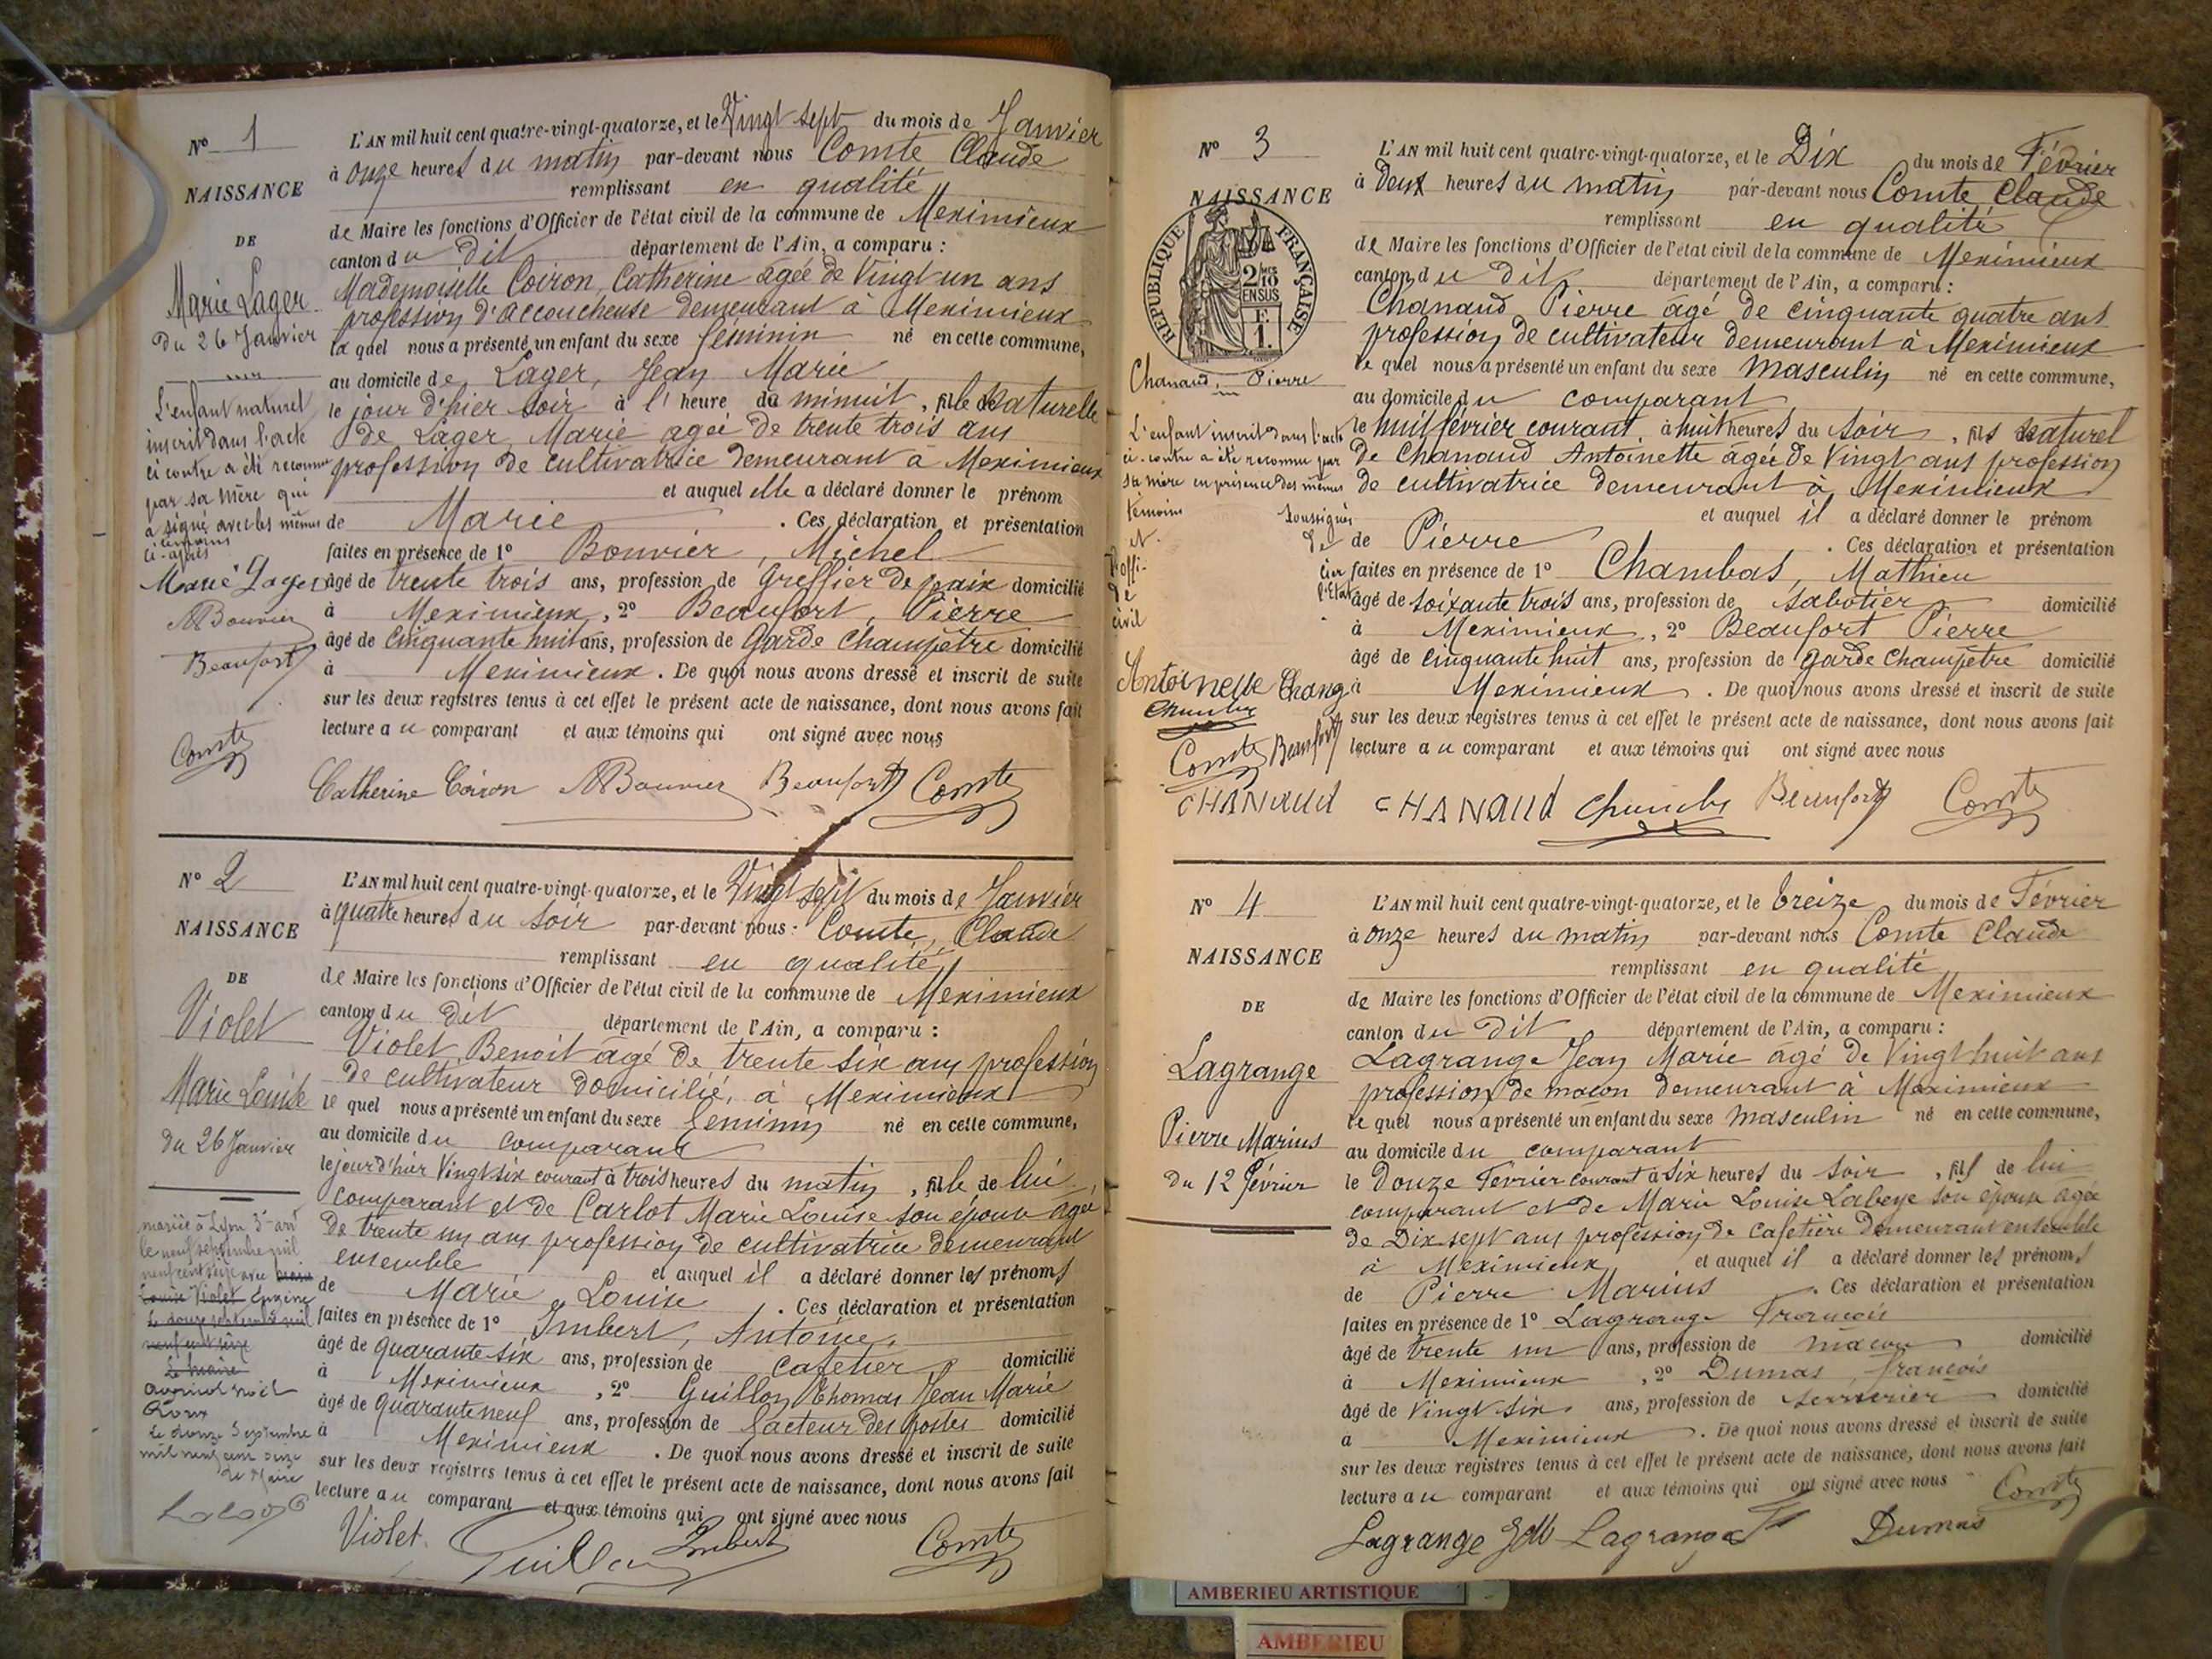 N° 1
NAISSANCE
DE
Marie Lager
Du 26 Janvier
L'enfant naturel
inscrit dans l'acte
ci contre a été reconnu
par sa mère qui
a signé avec les mêmes
témoins
ci-après
Marie Lager
Bouvier
Beaufort
Comte
L'AN mil huit cent quatre-vingt-quatorze, et le Vingt sept du mois de Janvier
à onze heures du matin par-devant nous Comte Claude
remplissant en qualité
de Maire les fonctions d'Officier de l'état civil de la commune de Meximieux
canton du dit département de l'Ain, a comparu :
Mademoiselle Coiron, Catherine âgée de Vingt un ans
profession d'accoucheuse demeurant à Meximieux
la quel nous a présenté un enfant du sexe féminin né en cette commune,
au domicile de Lager, Jean Marie
le jour d'hier soir à l' heure da minuit, fille de naturelle
de Lager Marie agée de trente trois ans
profession de cultivatrice demeurant à Meximieux
et auquel elle a déclaré donner le prénom
de Marie . Ces déclaration et présentation
faites en présence de 1° Bouvier, Michel
âgé de trente trois ans, profession de Greffier de paix domicilié
à Meximieux, 2° Beaufort, Pierre
âgé de cinquante huit ans, profession de Garde Champêtre domicilié
à Meximieux. De quoi nous avons dressé et inscrit de suite
sur les deux registres tenus à cet effet le présent acte de naissance, dont nous avons fait
lecture au comparant et aux témoins qui ont signé avec nous
Catherine Coiron Bouvier Beaufort Comte
N° 2
NAISSANCE
DE
Violet
Marie Louise
du 26 Janvier
mariée à Lyon 3e arrd
le neuf septembre mil
neuf cent seize avec
Louise Violet Eugène
le douze septembre mil
neuf cent seize
Le Maire
Noël
Roux
Le douze Septembre
mil neuf cent seize
Le Maire
L'AN mil huit cent quatre-vingt-quatorze, et le Vingt sept du mois de Janvier
à quatre heures du soir par-devant nous : Comte, Claude
remplissant en qualité
de Maire les fonctions d'Officier de l'état civil de la commune de Meximieux
canton du dit département de l'Ain, a comparu :
Violet, Benoit âgé de trente six ans profession
de cultivateur domicilié, à Meximieux
le quel nous a présenté un enfant du sexe féminin né en cette commune,
au domicile du comparant
le jour d'hier Vingt six courant à trois heures du matin, fille de lui
comparant et de Carlot Marie Louise son épouse âgée
de trente un ans profession de cultivatrice demeurant
ensemble et auquel il a déclaré donner les prénoms
de Marie Louise . Ces déclaration et présentation
faites en présence de 1° Imbert, Antoine,
âgé de quarante six ans, profession de cafetier domicilié
à Meximieux, 2° Guillon Thomas Jean Marie
âgé de quarante neuf ans, profession de facteur des postes domicilié
à Meximieux. De quoi nous avons dressé et inscrit de suite
sur les deux registres tenus à cet effet le présent acte de naissance, dont nous avons fait
lecture au comparant et aux témoins qui ont signé avec nous
Violet Guillon Imbert Comte
N° 3
NAISSANCE
REPUBLIQUE FRANÇAISE
2/10
EN SUS
1 F.
Chanaud, Pierre
L'enfant inscrit dans l'acte
ci-contre a été reconnu par
sa mère en présence des mêmes
témoins soussignés
et de
l'offi- cier
de l'Etat
civil
Antoinette Chanaud
Comte Beaufort
CHANAUD
L'AN mil huit cent quatre-vingt-quatorze, et le Dix du mois de Février
à Deux heures du matin par-devant nous Comte Claude
remplissant en qualité
de Maire les fonctions d'Officier de l'état civil de la commune de Meximieux
canton du dit département de l'Ain, a comparu :
Chanaud Pierre âgé de cinquante quatre ans
profession de cultivateur demeurant à Meximieux
le quel nous a présenté un enfant du sexe masculin né en cette commune,
au domicile du comparant
le huit février courant, à huit heures du soir, fils naturel
de Chanaud Antoinette âgée de Vingt ans profession
de cultivatrice demeurant à Meximieux
et auquel il a déclaré donner le prénom
de Pierre . Ces déclaration et présentation
faites en présence de 1° Chambas, Mathieu
âgé de soixante trois ans, profession de sabotier domicilié
à Meximieux, 2° Beaufort Pierre
âgé de cinquante huit ans, profession de garde champêtre domicilié
à Meximieux. De quoi nous avons dressé et inscrit de suite
sur les deux registres tenus à cet effet le présent acte de naissance, dont nous avons fait
lecture au comparant et aux témoins qui ont signé avec nous
CHANAUD Beaufort Comte
N° 4
NAISSANCE
DE
Lagrange
Pierre Marius
du 12 Février
L'AN mil huit cent quatre-vingt-quatorze, et le treize du mois de Février
à onze heures du matin par-devant nous Comte Claude
remplissant en qualité
de Maire les fonctions d'Officier de l'état civil de la commune de Meximieux
canton du dit département de l'Ain, a comparu :
Lagrange Jean Marie âgé de Vingt huit ans
profession de maçon demeurant à Meximieux
le quel nous a présenté un enfant du sexe masculin né en cette commune,
au domicile du comparant
le Douze Février courant à six heures du soir, fils de lui
comparant et de Marie Louise Labeye son épouse âgée
de Dix sept ans profession de cafetière demeurant ensemble
à Meximieux et auquel il a déclaré donner les prénoms
de Pierre Marius . Ces déclaration et présentation
faites en présence de 1° Lagrange François
âgé de trente un ans, profession de maçon domicilié
à Meximieux, 2° Dumas, François
âgé de Vingt six ans, profession de serrurier domicilié
à Meximieux. De quoi nous avons dressé et inscrit de suite
sur les deux registres tenus à cet effet le présent acte de naissance, dont nous avons fait
lecture au comparant et aux témoins qui ont signé avec nous
Comte
Lagrange JM Lagrange F Dumas
AMBERIEU ARTISTIQUE
AMBERIEU